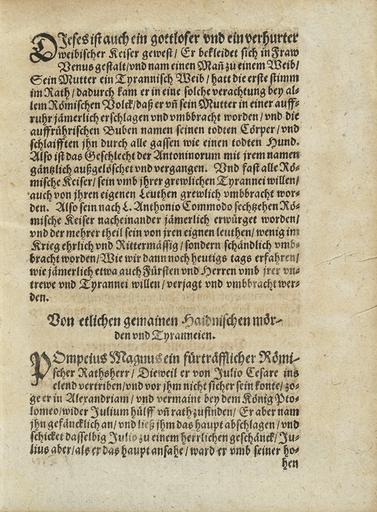 DIeses ist auch ein gottloser vnd ein verhurter
weibischer Keiser gewest/ Er bekleidet sich in Fraw
Venus gestalt/ vnd nam einen Mañ zu einem Weib/
Sein Mutter ein Tyrannisch Weib/ hatt die erste stimm
im Rath/ dadurch kam er in eine solche verachtung bey al-
lem Römischen Volck/ daß er vñ sein Mutter in einer auff-
ruhr jämerlich erschlagen vnd vmbbracht worden/ vnd die
auffrührischen Buben namen seinen todten Cörper/ vnd
schlaifften jhn durch alle gassen wie einen todten Hund.
Also ist das Geschlecht der Antoninorum mit jrem namen
gäntzlich außgelöschet vnd vergangen. Vnd fast alle Rö-
mische Keiser/ sein vmb jhrer grewlichen Tyrannei willen/
auch von jhren eigenen Leuthen grewlich vmbbracht wor-
den. Also sein nach L. Anthonio Commodo sechtzehen Rö-
mische Keiser nacheinander jämerlich erwürget worden/
vnd der mehrer theil sein von jren eignen leuthen/ wenig im
Krieg ehrlich vnd Rittermässig/ sondern schändlich vmb-
bracht worden/ Wie wir dann noch heutigs tags erfahren/
wie jämerlich etwa auch Fürsten vnd Herren vmb jrer vn-
trewe vnd Tyrannei willen/ verjagt vnd vmbbracht wer-
den.
Von etlichen gemainen Haidnischen mör-
den vnd Tyranneien.
POmpeius Magnus ein fürträfflicher Römi-
scher Rathsherr/ Dieweil er von Julio Cesare ins
elend vertriben/ vnd vor jhm nicht sicher sein konte/ zo-
ge er in Alexandriam/ vnd vermaint bey dem König Pto-
lomeo/ wider Julium hülff vñ rath zufinden/ Er aber nam
jhn gefäncklich an/ vnd ließ jhm das haupt abschlagen/ vnd
schicket dasselbig Julio zu einem herrlichen geschänck/ Ju-
lius aber/ als er das haupt ansahe/ ward er vmb seiner ho-
hen